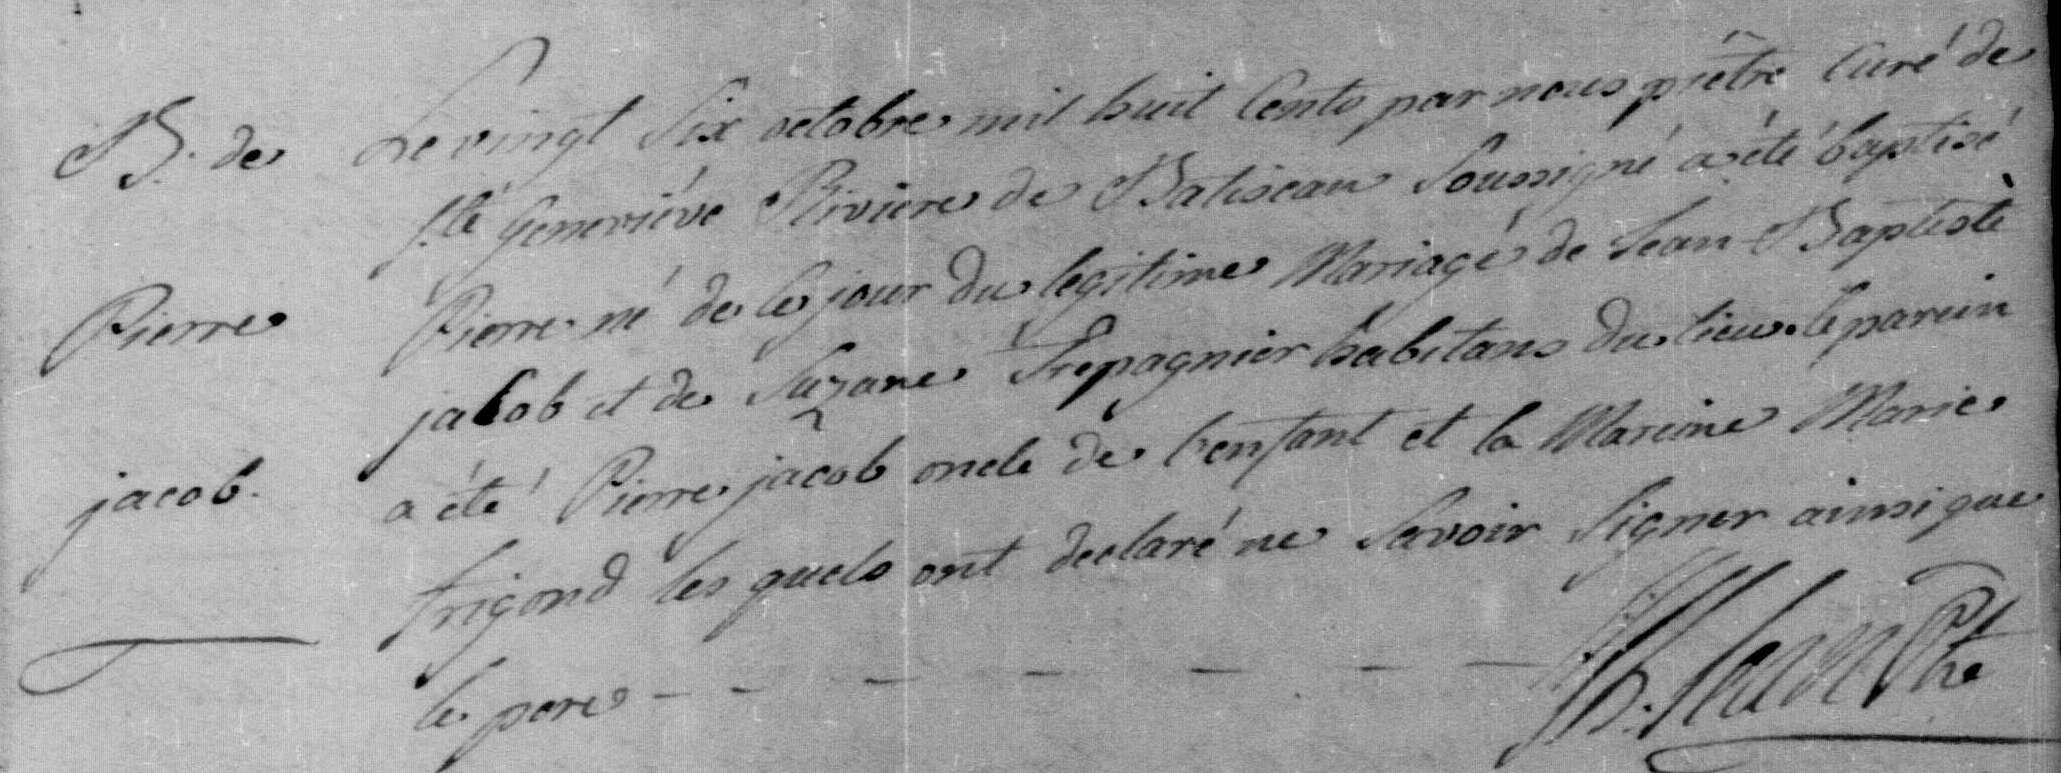 B. de
Pierre
jacob.
Le vingt Six octobre mil huit Cents par nous prêtre Curé de
Ste Geneviéve Riviere de Batiscan Soussigné a été baptisé
Pierre né de Ce jour du legitime Mariage de Jean Baptiste
jacob et de Suzane Trepagnier habitans du lieu. le parein
a été Pierre jacob oncle de l'enfant et la Mareine Marie
frigond les quels ont declaré ne Savoir Signer ainsi que
le pere - - - - - - -
Ptre